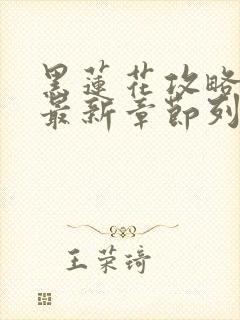 黑蓮花攻略
最新章節列
王荣琦